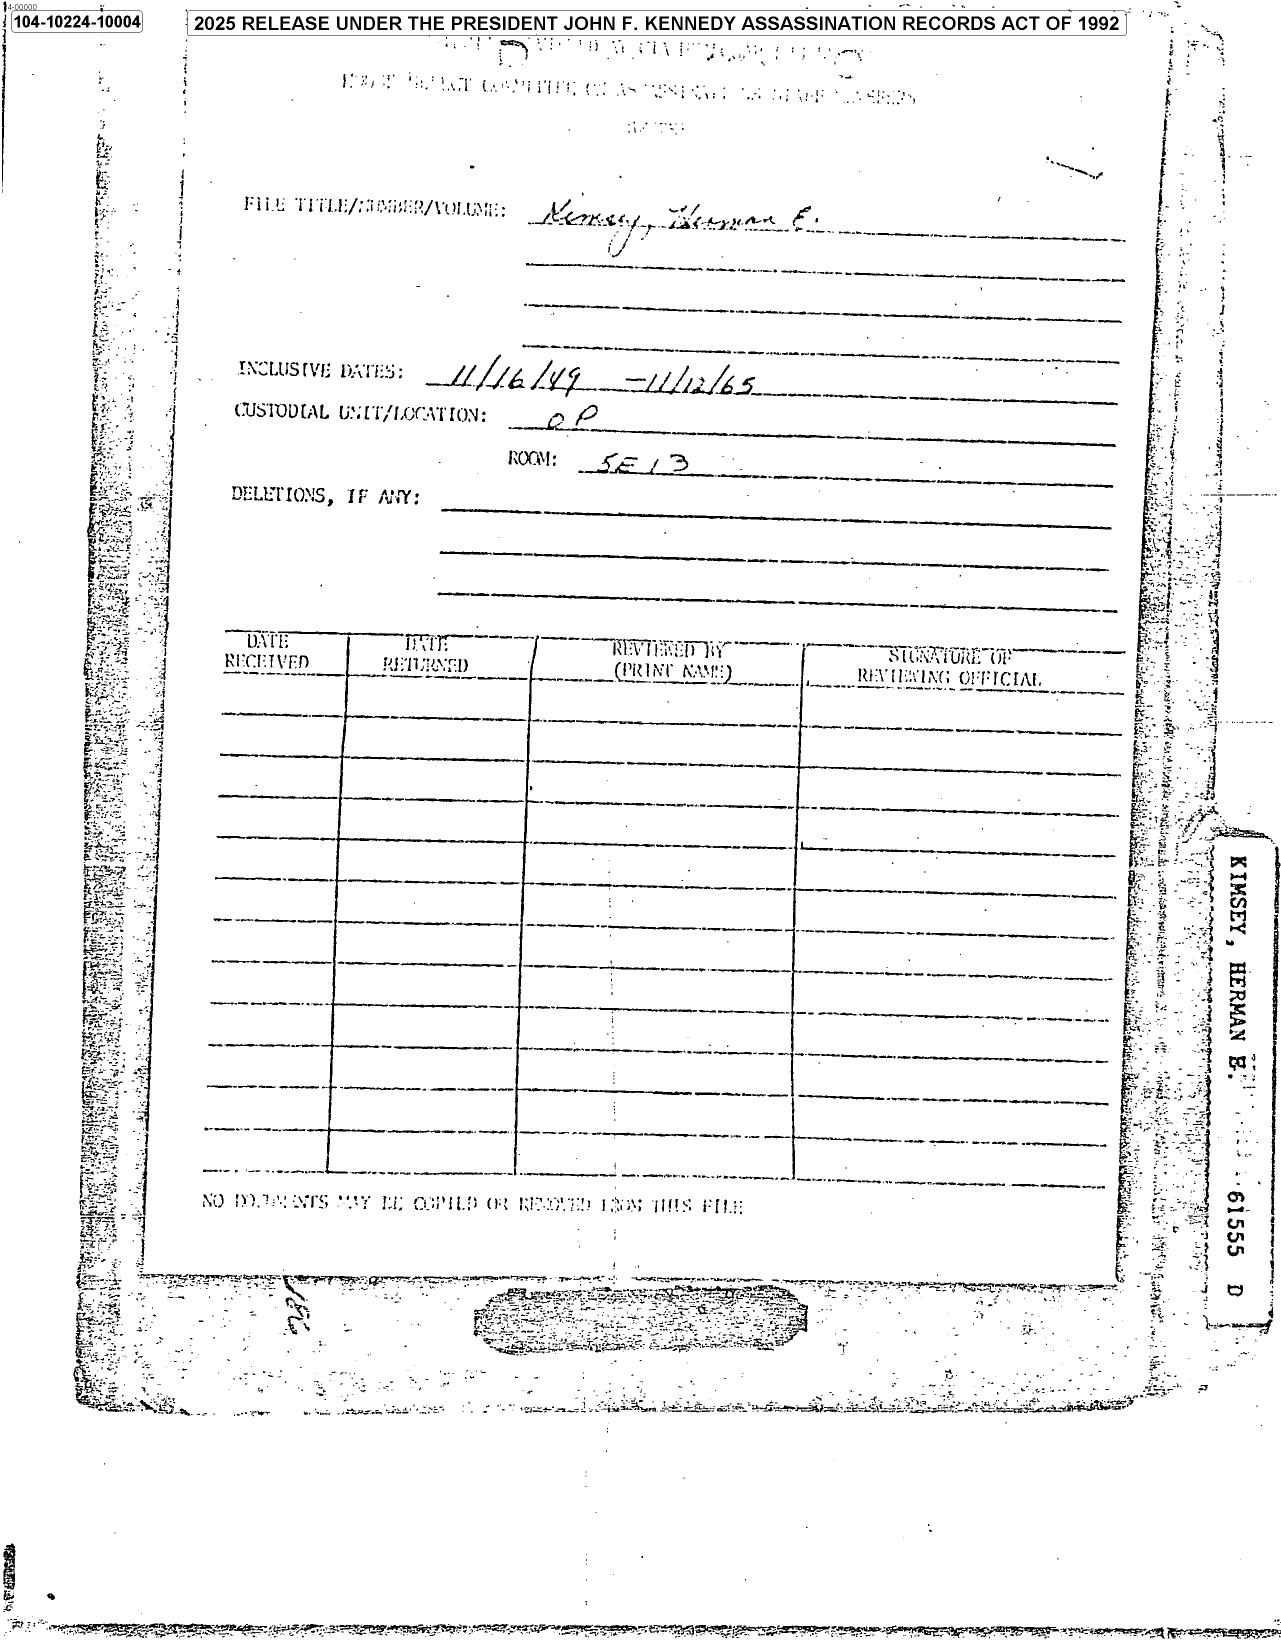 14-00000
104-10224-10004
2025 RELEASE UNDER THE PRESIDENT JOHN F. KENNEDY ASSASSINATION RECORDS ACT OF 1992
HOUSE SELECT COMMITTEE ON ASSASSINATIONS STAFF MEMBERS
FILE TITLE/NUMBER/VOLUME: Kimsey, Herman E.
INCLUSIVE DATES: 11/16/49 - 11/12/65
CUSTODIAL UNIT/LOCATION: OP
ROOM: 5E13
DELETIONS, IF ANY:
DATE RECEIVED
DATE RETURNED
REVIEWED BY (PRINT NAME)
SIGNATURE OF REVIEWING OFFICIAL
NO DOCUMENTS MAY BE COPIED OR REMOVED FROM THIS FILE
KIMSEY, HERMAN E. 61555 D
186